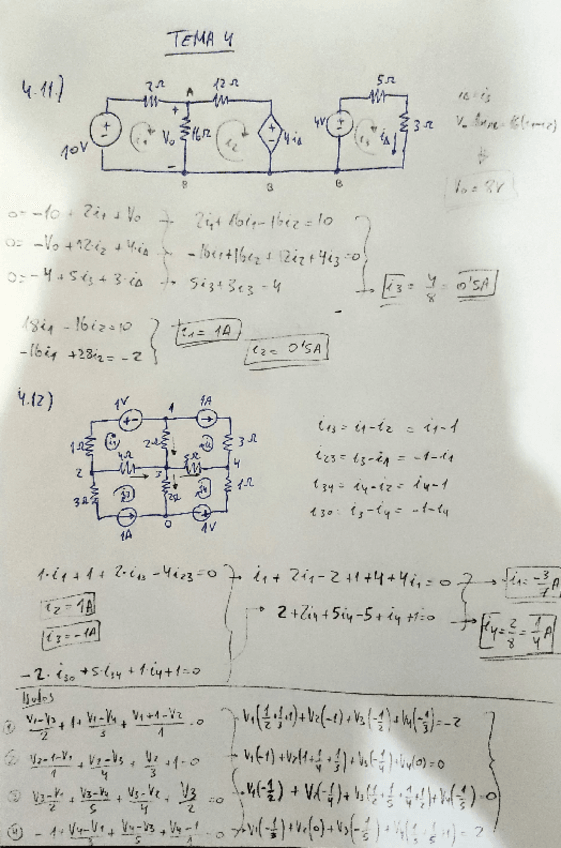 TEMA 4
4.11.)
2Ω A 12Ω 5Ω
10V i1 + V0 - 16Ω i2 4iΔ 4V iΔ 3Ω
B B B
iΔ = i3
V0 = 8V
0 = -10 + 2i1 + V0 → 2i1 + 16i1 - 16i2 = 10
0 = -V0 + 12i2 + 4iΔ → -16i1 + 16i2 + 12i2 + 4i3 = 0
0 = -4 + 5i3 + 3·iΔ → 5i3 + 3i3 = 4 → i3 = 4/8 = 0'5A
18i1 - 16i2 = 10
-16i1 + 28i2 = -2
i1 = 1A
i2 = 0'5A
4.12)
1V 1 1A
1Ω i1 2Ω i2 3Ω
2 4Ω 3 5Ω 4
3Ω i3 2Ω i4 1Ω
1A 0 1V
i13 = i1 - i2 = i1 - 1
i23 = i3 - i1 = -1 - i1
i34 = i4 - i2 = i4 - 1
i30 = i3 - i4 = -1 - i4
1·i1 + 1 + 2·i13 - 4i23 = 0 → i1 + 2i1 - 2 + 1 + 4 + 4i1 = 0 → i1 = -3/7 A
i2 = 1A
2 + 2i4 + 5i4 - 5 + i4 + 1 = 0 → i4 = 2/8 = 1/4 A
i3 = -1A
-2·i30 + 5·i34 + 1·i4 + 1 = 0
Nudos
① (V1-V3)/2 + 1 + (V1-V4)/3 + (V1+1-V2)/1 = 0 → V1(1/2+1/3+1) + V2(-1) + V3(-1/2) + V4(-1/3) = -2
② (V2-1-V1)/1 + (V2-V3)/4 + V2/3 + 1 = 0 → V1(-1) + V2(1+1/4+1/3) + V3(-1/4) + V4(0) = 0
③ (V3-V1)/2 + (V3-V4)/5 + (V3-V2)/4 + V3/2 = 0 → V1(-1/2) + V2(-1/4) + V3(1/2+1/5+1/4+1/2) + V4(-1/5) = 0
④ -1 + (V4-V1)/3 + (V4-V3)/5 + (V4-1)/1 = 0 → V1(-1/3) + V2(0) + V3(-1/5) + V4(1/3+1/5+1) = 2